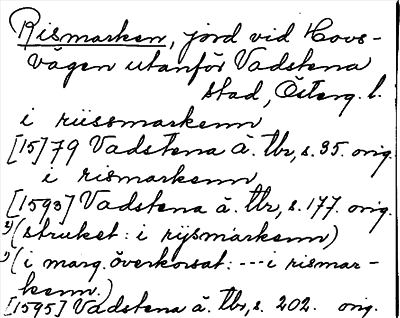 Rismarken, jord vid Hovs-
vägen utanför Vadstena
stad, Österg. l.
i riissmarkenn
[15]79 Vadstena ä. tbr, s. 35. orig.
i rismarkenn
[1593] Vadstena ä. tbr, s. 177. orig.
²)(struket: i rijsmarkenn)
¹)(i marg. överkorsat: --- i rismar-
kenn.)
[1595] Vadstena ä. tbr, s. 202. orig.